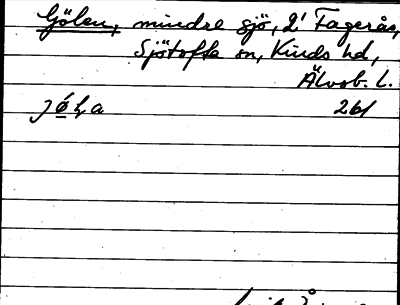 Gölen, mindre sjö, 2' Fagerås,
Sjötofta sn, Kinds hd,
Älvsb. l.
261